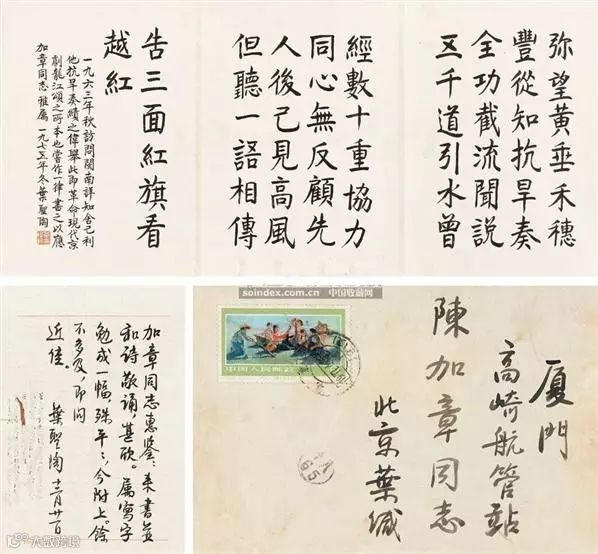 弥望黃垂禾穗
豐從知抗旱奏
全功截流聞説
五千道引水曾
經數十重協力
同心無反顧先
人後己見高風
但聽一語相傳
告三面紅旗看
越紅
一九六三年秋訪問閩南詳知舍己利
他抗旱奏績之偉舉此即革命現代京
劇龍江頌之所本也嘗作一律書之以應
加章同志雅屬 一九七五年冬葉聖陶
soindex.com 中国收藏网
加章同志惠鑒:来書並
和詩敬誦,甚欣。属寫字
勉成一幅,殊平平,今附上。餘
不多及,即问
近佳。
葉聖陶 十二月廿一日
厦門
高崎航管站
陳加章同志
北京葉缄
中国人民邮政
大数跨境